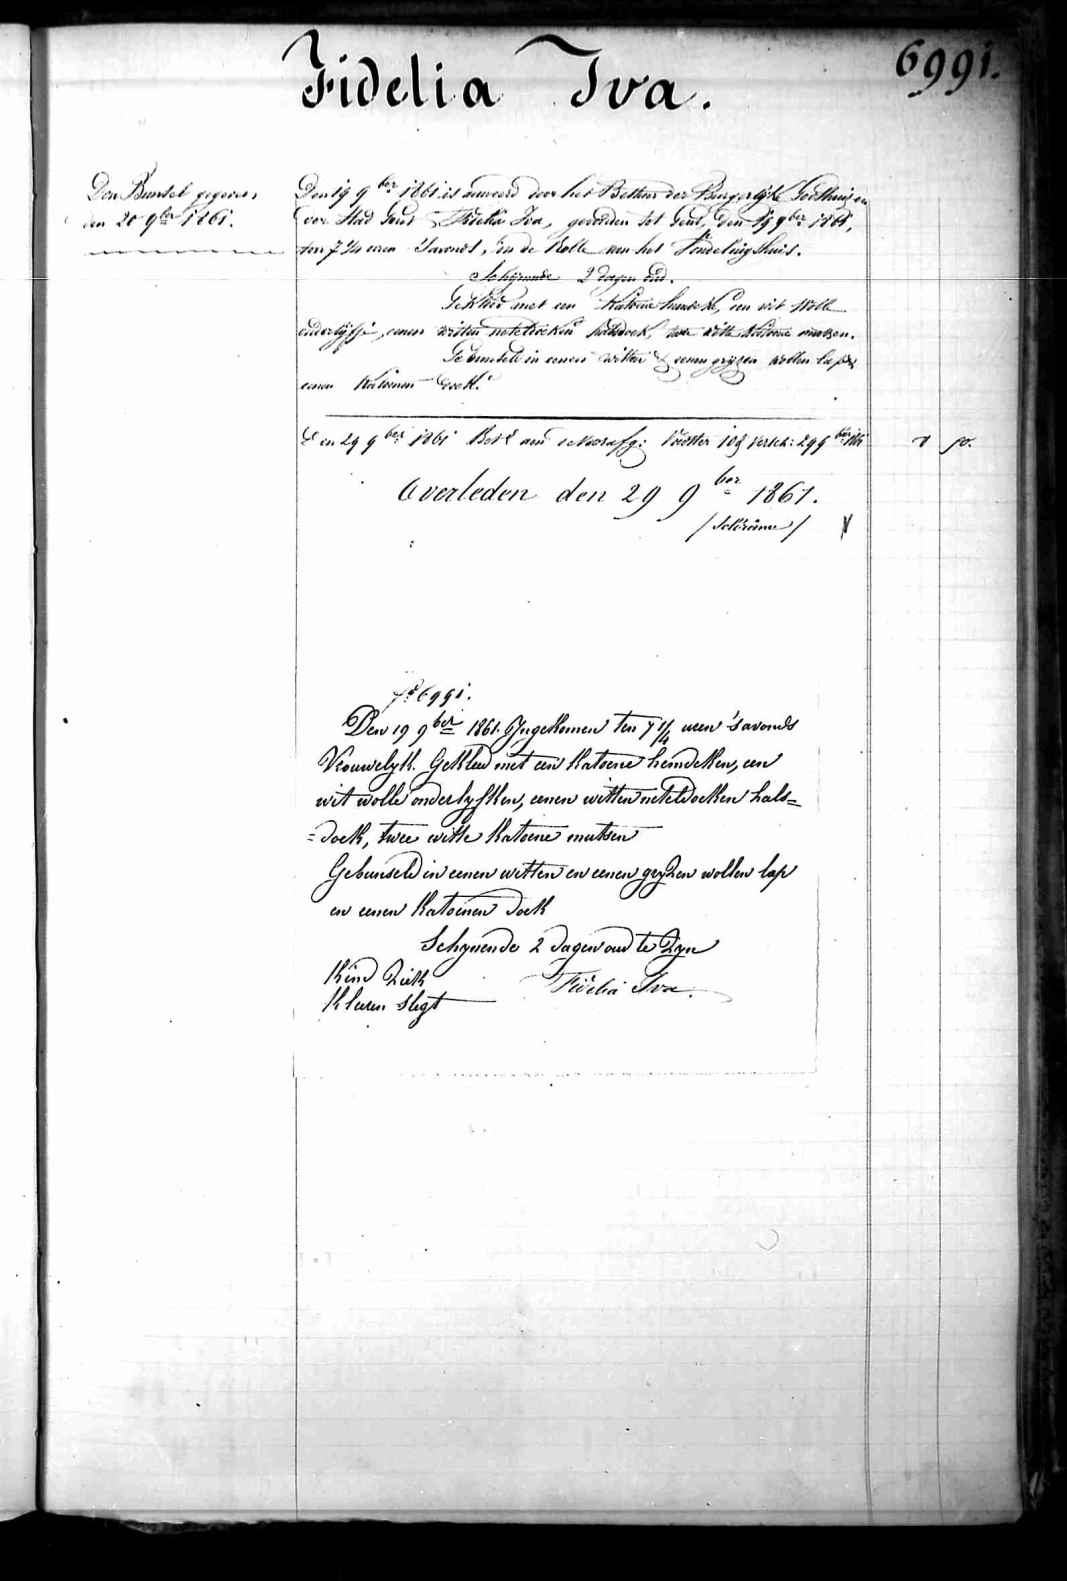 6991.
Fidelia Iva.
Den Bunsel gegeven
den 20 9ber 1861.
Den 19 9ber 1861 is aanveerd door het Bestuur der Burgerlyke Godshuizen
der Stad Gend Fidelia Iva, gevonden tot Gend, den 19 9ber 1861,
ten 7 1/4 uren 'savonds, in de Rolle van het Vondelingshuis.
Schijnende 2 dagen oud.
Gekleed met een Katoene hemdeke, een wit wolle
onderlyfje, eenen witten neteldoeken halsdoek, twee witte Katoene mutsen.
Gebunseld in eenen witten & eenen gryzen wollen lap &
eenen Katoenen doek.
Den 29 9ber 1861 Bet. aan 29 9ber 1861
Overleden den 29 9ber 1861.
6991.
Den 19 9ber 1861. Ingekomen ten 7 1/4 uren 'savonds
Vrouwelyk. Gekleed met een Katoene hemdeken, een
wit wolle onderlyfken, eenen witten neteldoeken hals=
=doek, twee witte Katoene mutsen
Gebunseld in eenen witten en eenen gryzen wollen lap
en eenen Katoenen doek
Schynende 2 dagen oud te Zyn
Kind Ziek
Fidelia Iva.
Kleeren slegt